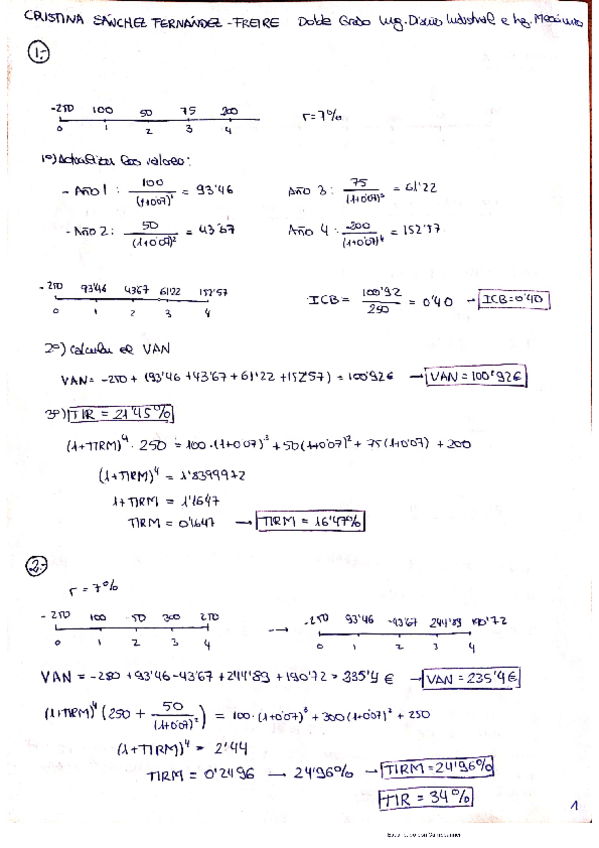 CRISTINA SÁNCHEZ FERNÁNDEZ-FREIRE Doble Grado Ing. Diseño Industrial e Ing. Mecánica
1-
-250 100 50 75 200
0 1 2 3 4
r=7%
1º) Actualizar los valores:
- Año 1: 100/(1+0'07)^1 = 93'46 Año 3: 75/(1+0'07)^3 = 61'22
- Año 2: 50/(1+0'07)^2 = 43'67 Año 4: 200/(1+0'07)^4 = 152'57
-250 93'46 43'67 61'22 152'57
0 1 2 3 4
ICB = 100'92/250 = 0'40 → ICB=0'40
2º) Calcular el VAN
VAN = -250 + (93'46 + 43'67 + 61'22 + 152'57) = 100'92€ → VAN = 100'92€
3º) TIR = 21'45%
(1+TIRM)^4 · 250 = 100·(1+0'07)^3 + 50(1+0'07)^2 + 75(1+0'07) + 200
(1+TIRM)^4 = 1'8399972
1+TIRM = 1'1647
TIRM = 0'1647 → TIRM = 16'47%
2-
r = 7%
-250 100 -50 300 250
0 1 2 3 4
→
-250 93'46 -43'67 244'89 190'72
0 1 2 3 4
VAN = -250 + 93'46 - 43'67 + 244'89 + 190'72 = 235'4 € → VAN = 235'4€
(1+TIRM)^4 (250 + 50/(1+0'07)^2) = 100·(1+0'07)^3 + 300(1+0'07)^2 + 250
(1+TIRM)^4 = 2'44
TIRM = 0'2496 → 24'96% → TIRM = 24'96%
TIR = 34%
1